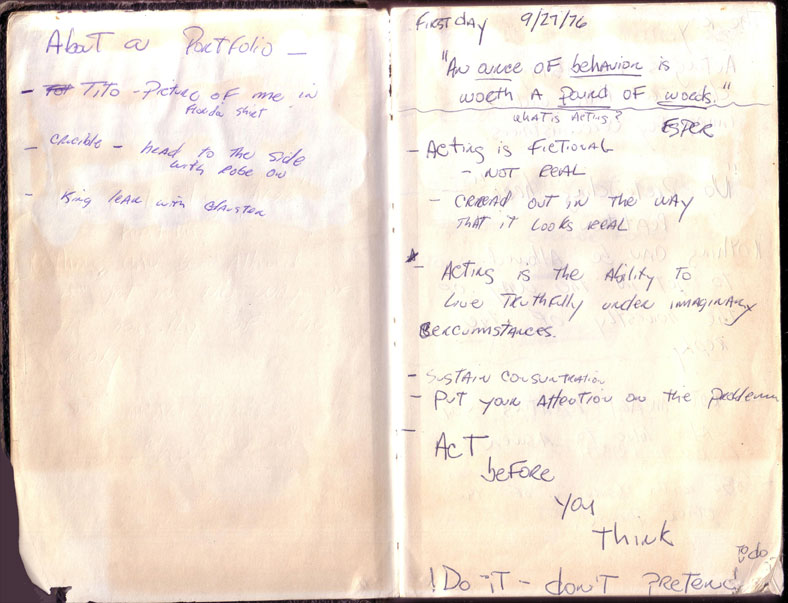 About a Portfolio —
- Tito - Picture of me in
Florida shirt
- Crucible - head to the side
with Robe on
- King lear with
First day 9/27/76
"An ounce of behavior is
worth a pound of words."
what is Acting?
ESPER
- Acting is fictional
- not real
- carread out in the way
that it looks real
* - Acting is the Ability to
Live Truthfully under imaginary
cercumstances.
- Sustain consuntration
- Put your Attention on the problem
-
Act
before
you
think
to do
! Do it - don't pretend